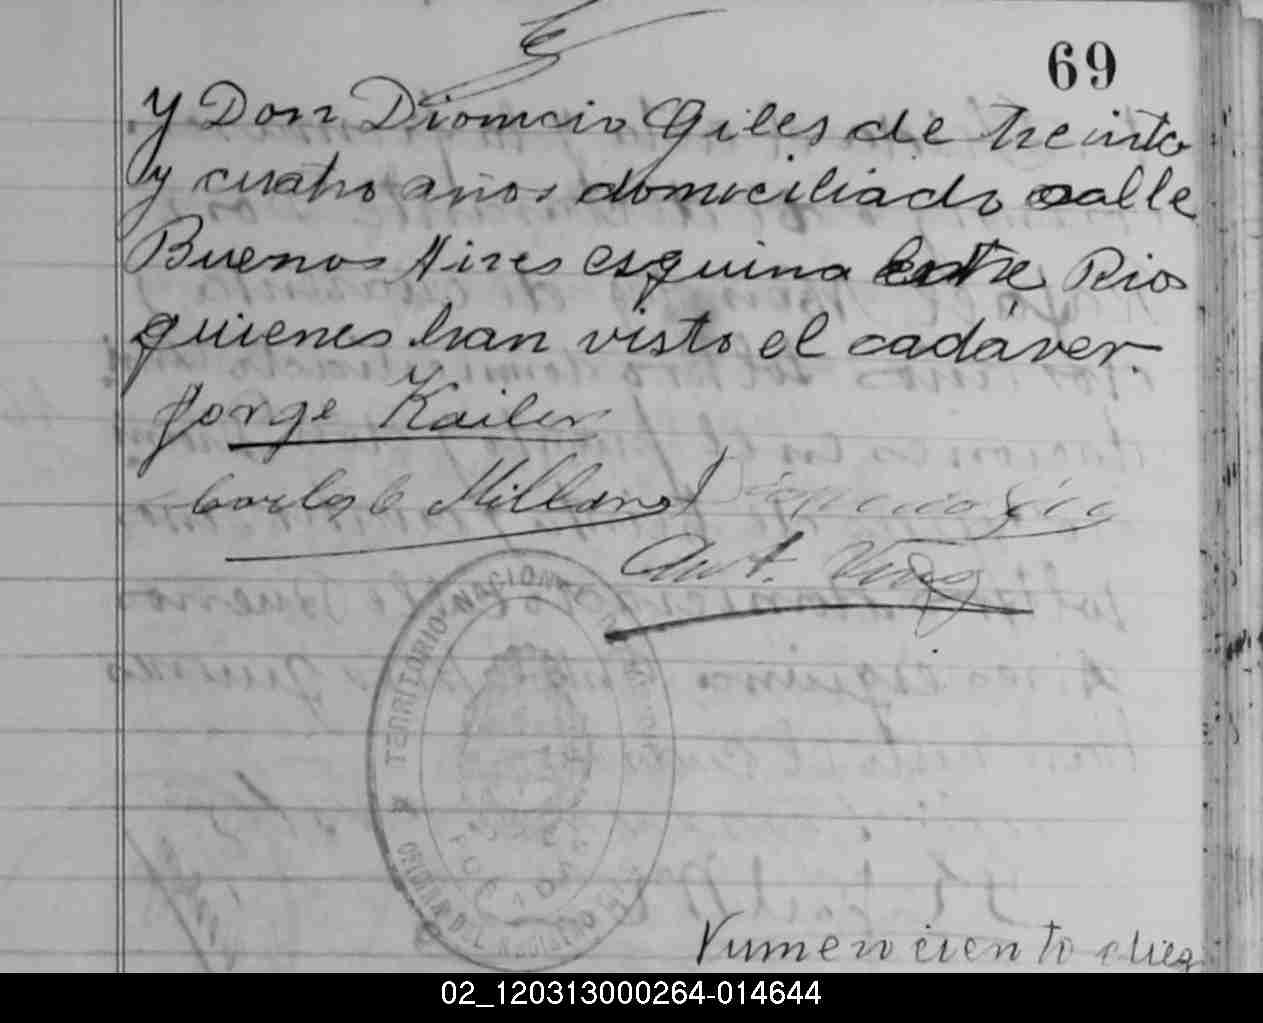 69
y Don Dionicio Giles de treinta
y cuatro años domiciliado calle
Buenos Aires esquina Entre Rios
quienes han visto el cadáver.
Jorge Kailer
Carlos C Millano
Ant.
TERRITORIO NACIONAL DE MISIONES
POSADAS
Numero ciento diez
02_120313000264-014644